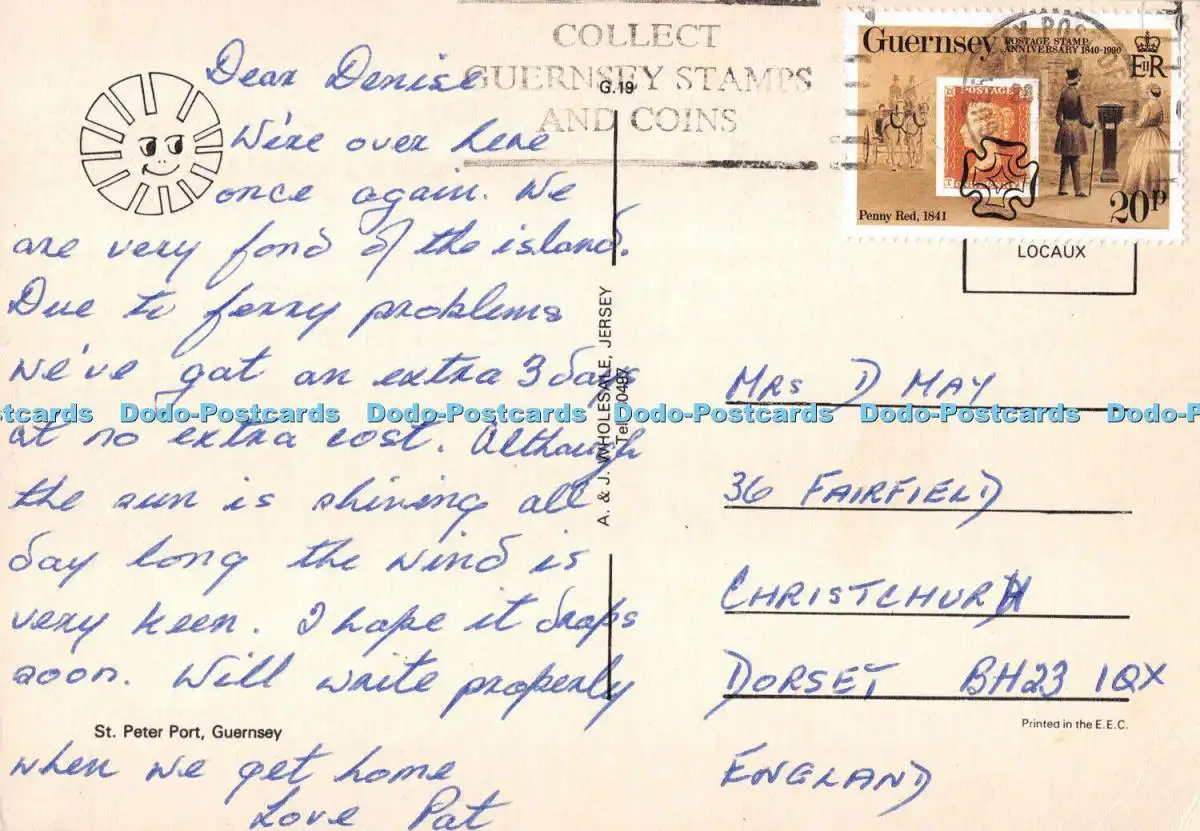 COLLECT
GUERNSEY STAMPS
AND COINS
Guernsey
POSTAGE STAMP
ANNIVERSARY 1840-1990
EIIR
POSTAGE
Penny Red, 1841
20p
LOCAUX
G.19
Dear Denise
We're over here
once again. We
are very fond of the island.
Due to ferry problems
we've got an extra 3 days
at no extra cost. Although
the sun is shining all
day long the wind is
very keen. I hope it drops
soon. Will write properly
when we get home
Love Pat
St. Peter Port, Guernsey
A. & J. WHOLESALE, JERSEY
MRS D MAY
36 FAIRFIELD
CHRISTCHURH
DORSET BH23 1QX
ENGLAND
Printed in the E.E.C.
Dodo-Postcards Dodo-Postcards Dodo-Postcards Dodo-Postcards